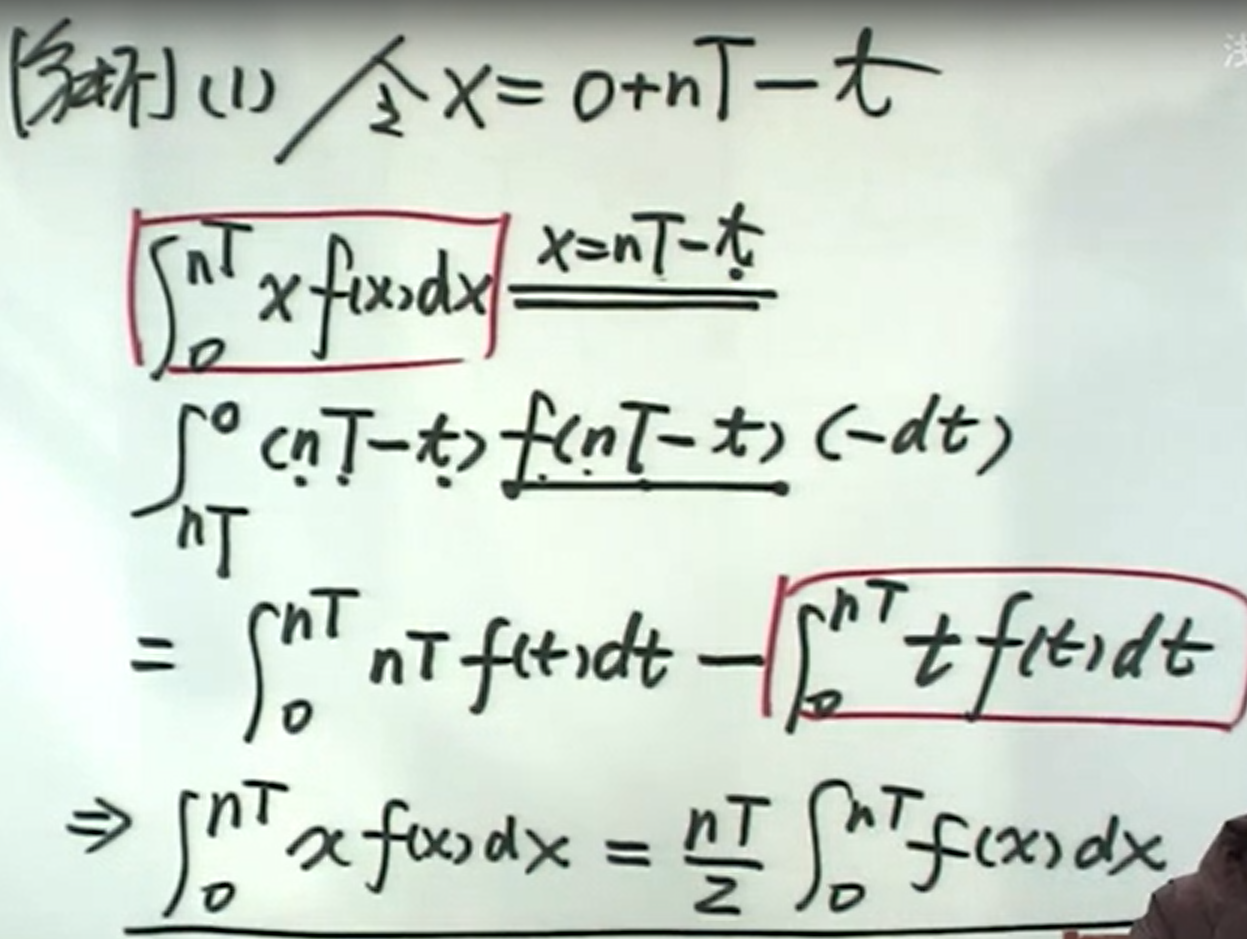 [解析](1) 令x=0+nT-t
∫₀ⁿᵀ x f(x)dx x=nT-t
∫ₙᴛ⁰ (nT-t) f(nT-t) (-dt)
= ∫₀ⁿᵀ nT f(t)dt - ∫₀ⁿᵀ t f(t)dt
⇒ ∫₀ⁿᵀ x f(x)dx = nT/2 ∫₀ⁿᵀ f(x)dx